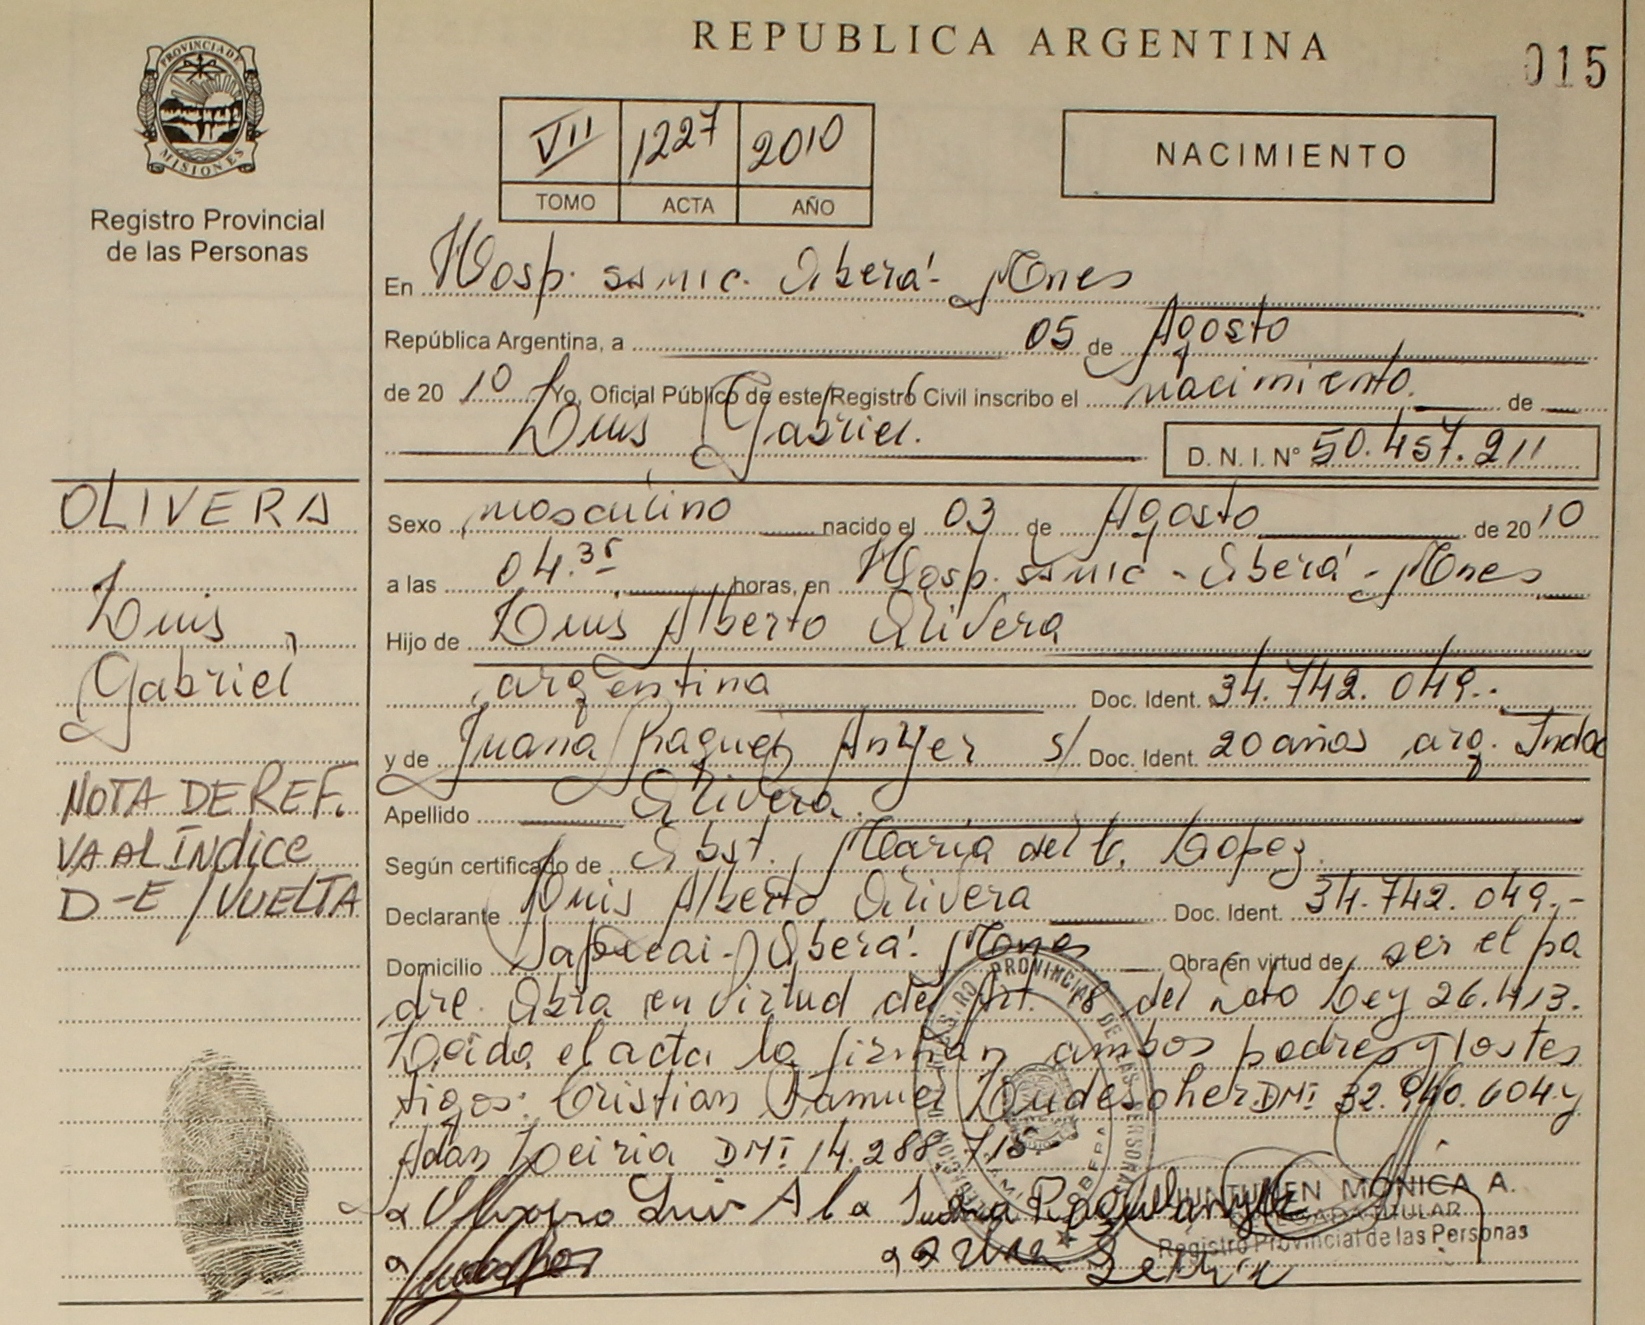 REPUBLICA ARGENTINA
015
PROVINCIA DE
MISIONES
Registro Provincial
de las Personas
VII 1227 2010
TOMO ACTA AÑO
NACIMIENTO
En Hosp. SAMIC. Oberá - Mnes
República Argentina, a 05 de Agosto
de 20 10 Yo, Oficial Público de este Registro Civil inscribo el nacimiento. de
Luis Gabriel.
D. N. I. N° 50.457.211
OLIVERA
Luis
Gabriel
NOTA DE REF.
VA AL INDICE
D-E/VUELTA
Sexo masculino nacido el 03 de Agosto de 20 10
a las 04.35 horas, en Hosp. SAMIC - Oberá - Mnes
Hijo de Luis Alberto Olivera
argentina Doc. Ident. 34.742.049.-
y de Juana Raquel s/ Doc. Ident. 20 años arg. Indoc
Apellido Olivera.
Según certificado de Obst. María del C. Lopez.
Declarante Luis Alberto Olivera Doc. Ident. 34.742.049.-
Domicilio Sapucai - Oberá. Mnes Obra en virtud de ser el pa
dre. Obra en virtud del Art. 18 del Ley 26.413.
Leida el acta la firman ambos padres y los tes
tigos: Cristian Samuel DNI 32.940.604 y
Adan DNI 14.288.715
MONICA A.
DELEGADA TITULAR
Registro Provincial de las Personas